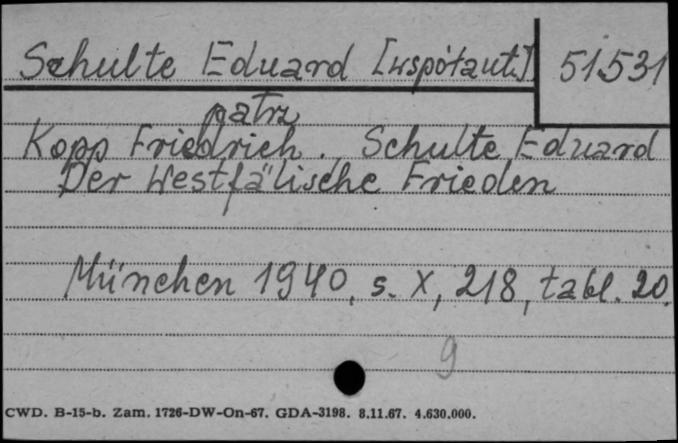 Schulte Eduard [współaut.] 51531
patrz
Kopp Friedrich. Schulte Eduard
Der Westfälische Frieden
München 1940, s. X, 218, tabl. 20.
9
CWD. B-15-b. Zam. 1726-DW-On-67. GDA-3198. 8.11.67. 4.630.000.